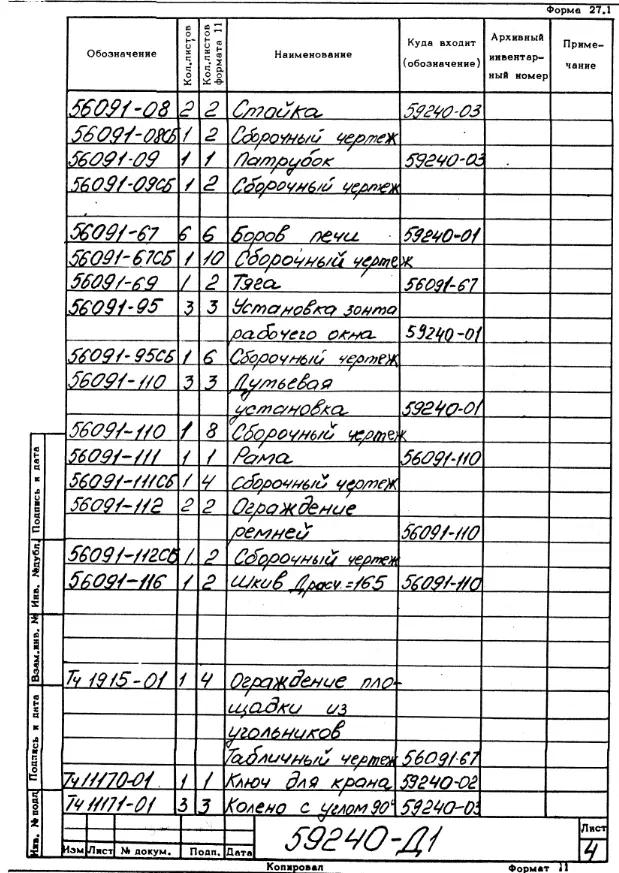 Форма 27.1
Обозначение Кол.листов Кол.листов формата 11 Наименование Куда входит (обозначение) Архивный инвентарный номер Примечание
56091-08 2 2 Стойка 59240-03
56091-08СБ 1 2 Сборочный чертеж
56091-09 1 1 Патрубок 59240-03
56091-09СБ 1 2 Сборочный чертеж
56091-67 6 6 Боров печи 59240-01
56091-67СБ 1 10 Сборочный чертеж
56091-69 1 2 Тяга 56091-67
56091-95 3 3 Установка зонта
рабочего окна 59240-01
56091-95СБ 1 6 Сборочный чертеж
56091-110 3 3 Дутьевая
установка 59240-01
56091-110 1 8 Сборочный чертеж
56091-111 1 1 Рама 56091-110
56091-111СБ 1 4 Сборочный чертеж
56091-112 2 2 Ограждение
ремней 56091-110
56091-112СБ 1 2 Сборочный чертеж
56091-116 1 2 Шкив Драсч=165 56091-110
Тч 1915-01 1 4 Ограждение пло-
щадки из
угольников
Табличный чертеж 56091-67
Тч11170-01 1 1 Ключ для крана 59240-02
Тч 11171-01 3 3 Колено с углом 90° 59240-03
Инв. № подл. Подпись и дата Взам.инв. № Инв. №дубл. Подпись и дата
Изм Лист № докум. Подп. Дата
59240-Д1
Лист
4
Копировал Формат 11